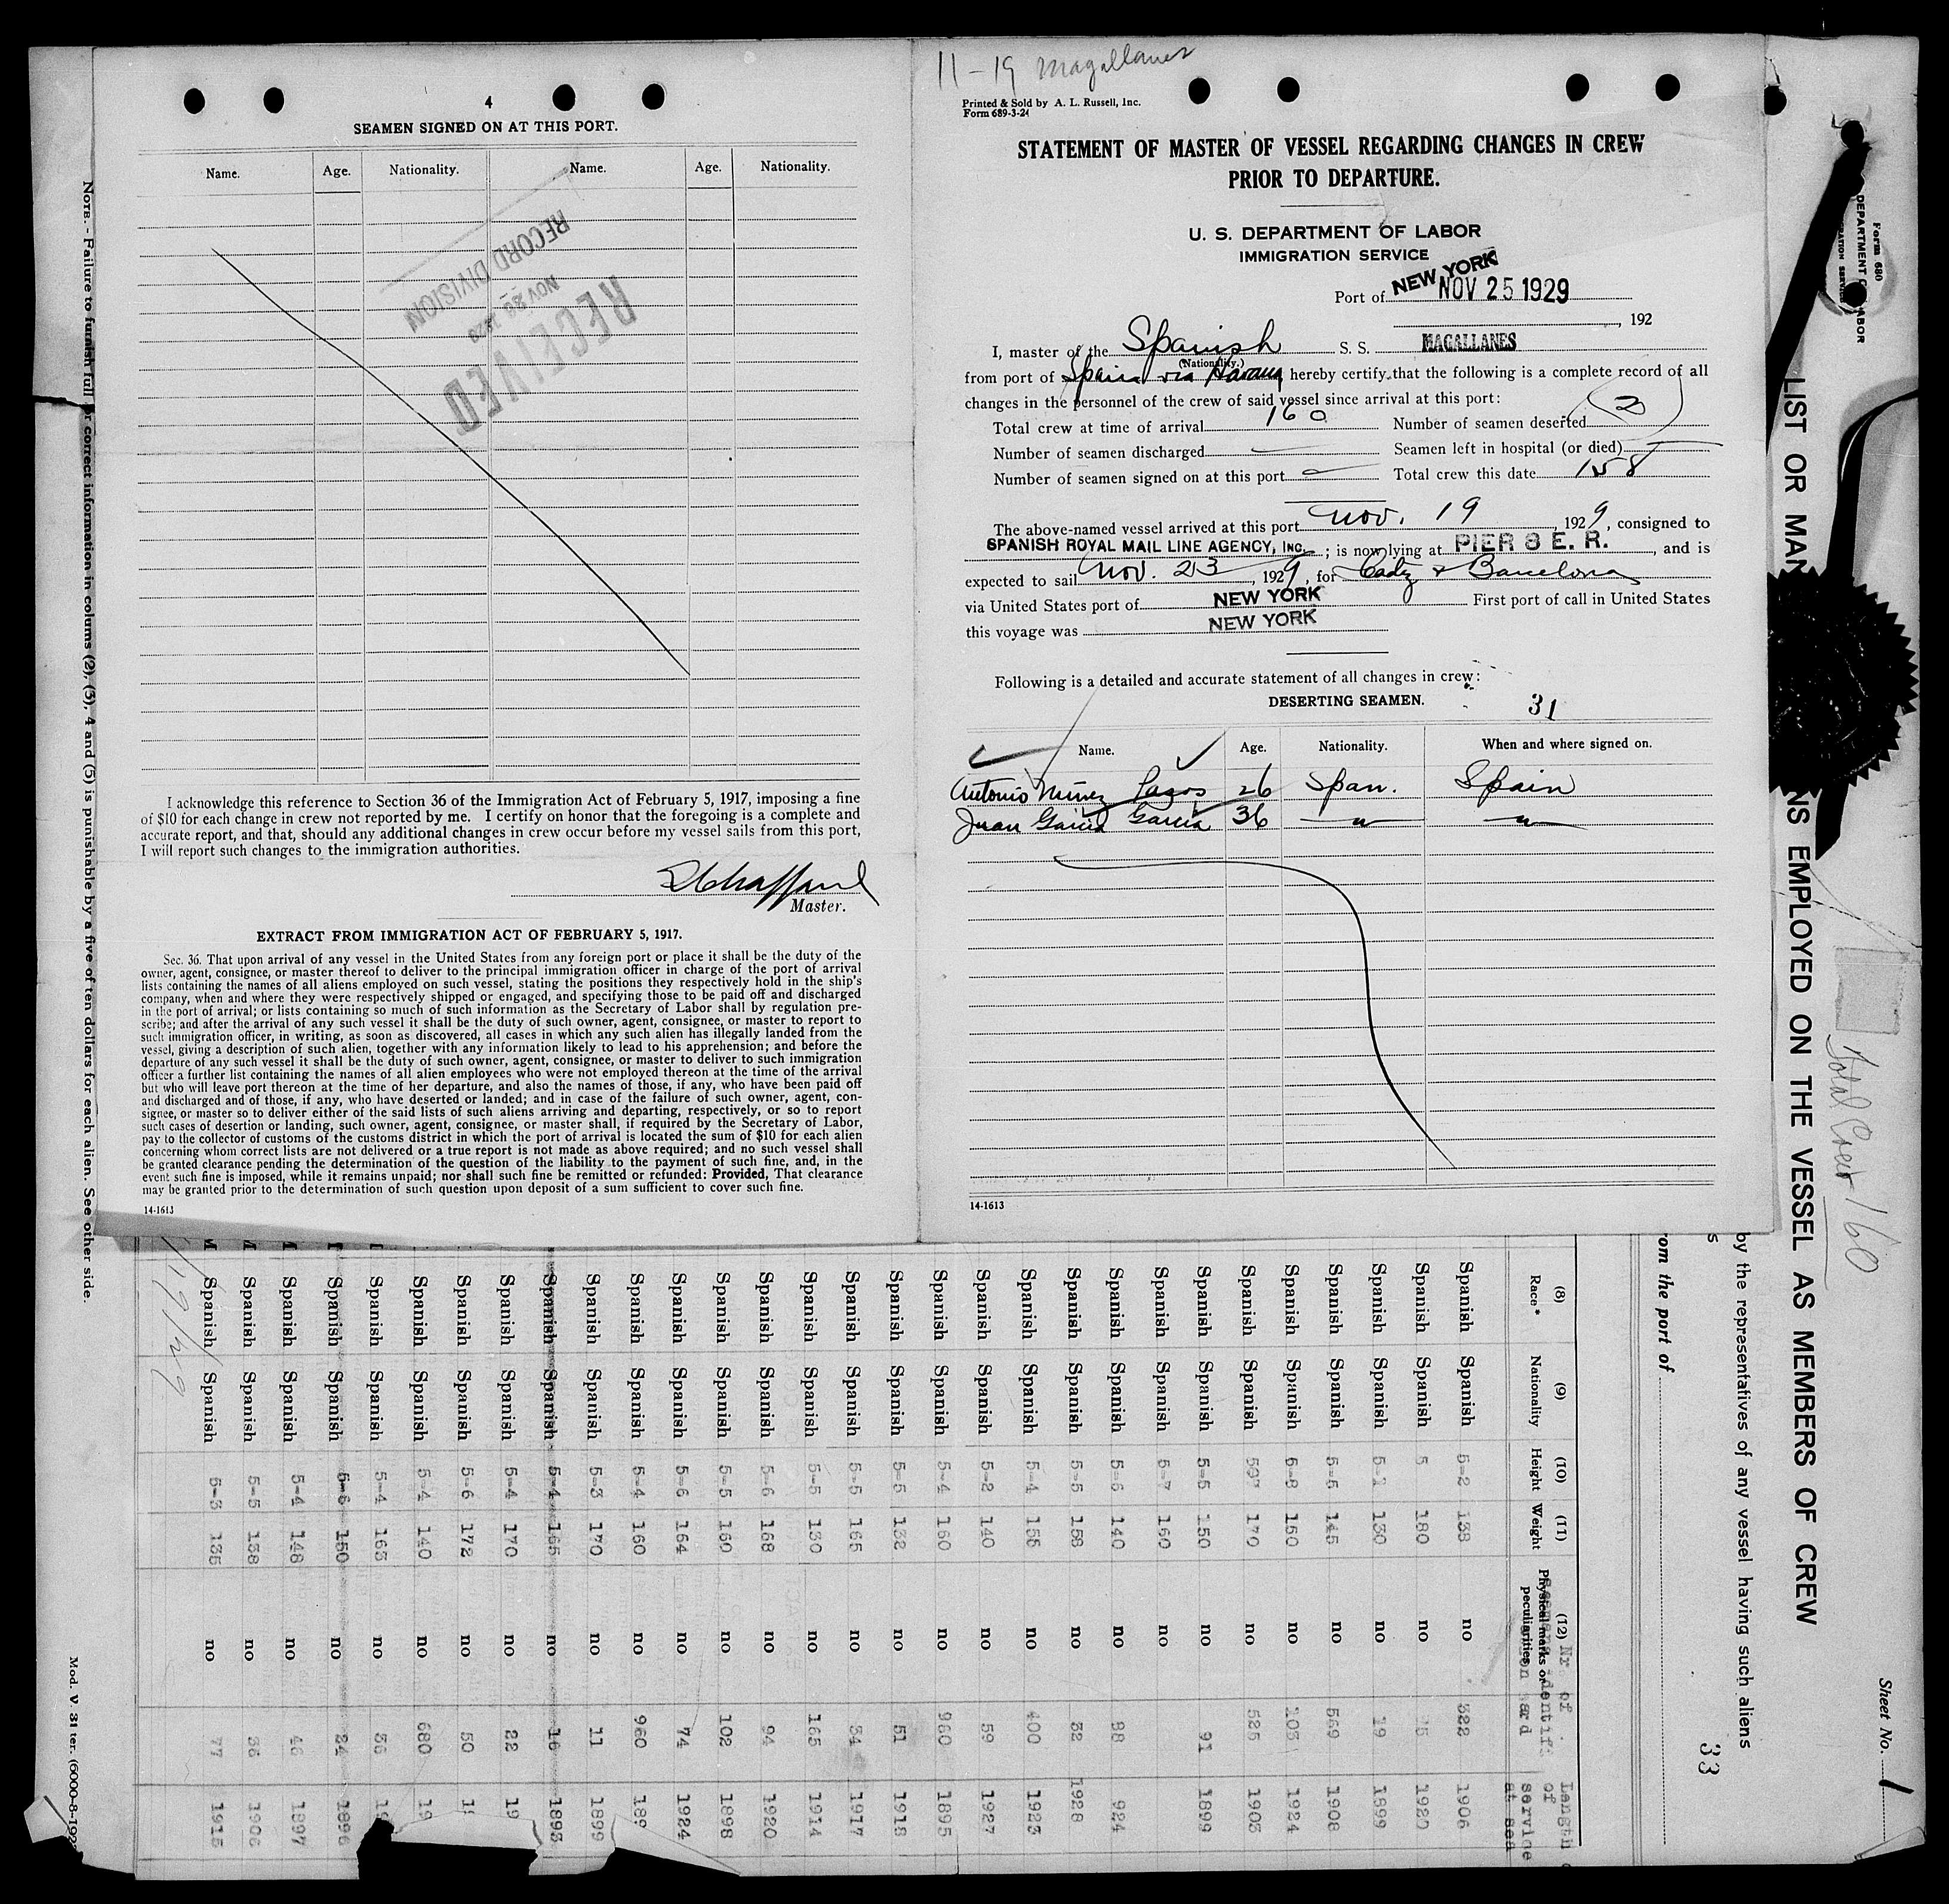 4
SEAMEN SIGNED ON AT THIS PORT.
Name. Age. Nationality. Name. Age. Nationality.
RECEIVED
NOV
RECORD DIVISION
I acknowledge this reference to Section 36 of the Immigration Act of February 5, 1917, imposing a fine
of $10 for each change in crew not reported by me. I certify on honor that the foregoing is a complete and
accurate report, and that, should any additional changes in crew occur before my vessel sails from this port,
I will report such changes to the immigration authorities.
Master.
EXTRACT FROM IMMIGRATION ACT OF FEBRUARY 5, 1917.
Sec. 36. That upon arrival of any vessel in the United States from any foreign port or place it shall be the duty of the
owner, agent, consignee, or master thereof to deliver to the principal immigration officer in charge of the port of arrival
lists containing the names of all aliens employed on such vessel, stating the positions they respectively hold in the ship's
company, when and where they were respectively shipped or engaged, and specifying those to be paid off and discharged
in the port of arrival; or lists containing so much of such information as the Secretary of Labor shall by regulation pre-
scribe; and after the arrival of any such vessel it shall be the duty of such owner, agent, consignee, or master to report to
such immigration officer, in writing, as soon as discovered, all cases in which any such alien has illegally landed from the
vessel, giving a description of such alien, together with any information likely to lead to his apprehension; and before the
departure of any such vessel it shall be the duty of such owner, agent, consignee, or master to deliver to such immigration
officer a further list containing the names of all alien employees who were not employed thereon at the time of the arrival
but who will leave port thereon at the time of her departure, and also the names of those, if any, who have been paid off
and discharged and of those, if any, who have deserted or landed; and in case of the failure of such owner, agent, con-
signee, or master so to deliver either of the said lists of such aliens arriving and departing, respectively, or so to report
such cases of desertion or landing, such owner, agent, consignee, or master shall, if required by the Secretary of Labor,
pay to the collector of customs of the customs district in which the port of arrival is located the sum of $10 for each alien
concerning whom correct lists are not delivered or a true report is not made as above required; and no such vessel shall
be granted clearance pending the determination of the question of the liability to the payment of such fine, and, in the
event such fine is imposed, while it remains unpaid; nor shall such fine be remitted or refunded: Provided, That clearance
may be granted prior to the determination of such question upon deposit of a sum sufficient to cover such fine.
14-1613
11-19 Magallanes
Printed & Sold by A. L. Russell, Inc.
Form 689-3-24
STATEMENT OF MASTER OF VESSEL REGARDING CHANGES IN CREW
PRIOR TO DEPARTURE.
U. S. DEPARTMENT OF LABOR
IMMIGRATION SERVICE
Port of NEW YORK NOV 25 1929
, 192
I, master of the Spanish S. S. MAGALLANES
(Nationality.)
from port of Spain via Havana hereby certify that the following is a complete record of all
changes in the personnel of the crew of said vessel since arrival at this port:
Total crew at time of arrival 160 Number of seamen deserted 2
Number of seamen discharged Seamen left in hospital (or died)
Number of seamen signed on at this port Total crew this date 158
The above-named vessel arrived at this port Nov. 19, 1929, consigned to
SPANISH ROYAL MAIL LINE AGENCY, INC. ; is now lying at PIER 8 E. R. , and is
expected to sail Nov. 23, 1929, for Cadiz & Barcelona
via United States port of NEW YORK First port of call in United States
this voyage was NEW YORK
Following is a detailed and accurate statement of all changes in crew:
DESERTING SEAMEN. 31
Name. Age. Nationality. When and where signed on.
Antonio Nunez Lagos 26 Span. Spain
Juan Garcia Garcia 36 " "
14-1613
Form 680
DEPARTMENT OF LABOR
LIST OR MAN
NS EMPLOYED ON THE VESSEL AS MEMBERS OF CREW
Total Crew 160
Sheet No. 1
by the representatives of any vessel having such aliens
33
rom the port of
(8) Race* (9) Nationality (10) Height (11) Weight (12) Physical marks or peculiarities Nr of Length of service at sea
Spanish Spanish 5-2 138 no 322 1906
Spanish Spanish 5 180 no 1920
Spanish Spanish 5-1 130 no 19 1899
Spanish Spanish 5-5 145 no 569 1908
Spanish Spanish 5-8 150 no 1924
Spanish Spanish 170 no 525 1903
Spanish Spanish 5-5 150 no 91 1899
Spanish Spanish 5-7 160 no
Spanish Spanish 5-6 140 no 88 924
Spanish Spanish 5-5 158 no 32 1928
Spanish Spanish 5-4 no 400 1923
Spanish Spanish 5-2 140 no 59 1927
Spanish Spanish 5-4 160 no 960 1895
Spanish Spanish 5-5 132 no 51 1918
Spanish Spanish 5-5 165 no 34 1917
Spanish Spanish 5-5 130 no 165 1914
Spanish Spanish 5-6 168 no 94 1920
Spanish Spanish 5-5 160 no 102 1898
Spanish Spanish 5-6 164 no 74 1924
Spanish Spanish 5-4 160 no 960 189
Spanish Spanish 5-3 170 no 11 1899
Spanish Spanish 5-4 165 no 16 1893
Spanish Spanish 5-4 170 no 22 19
Spanish Spanish 5-6 172 no 50
Spanish Spanish 5-4 140 no 680 19
Spanish Spanish 5-4 163 no 36
Spanish Spanish 5-6 150 no 34 1896
Spanish Spanish 5-4 148 no 46 1897
Spanish Spanish 5-5 138 no 36 1906
Spanish Spanish 5-3 135 no 77 1915
NOTE. - Failure to furnish full or correct information in colums (2), (3), 4 and (5) is punishable by a five of ten dollars for each alien. See other side.
Mod. V. 31 ter. (6000-8-192